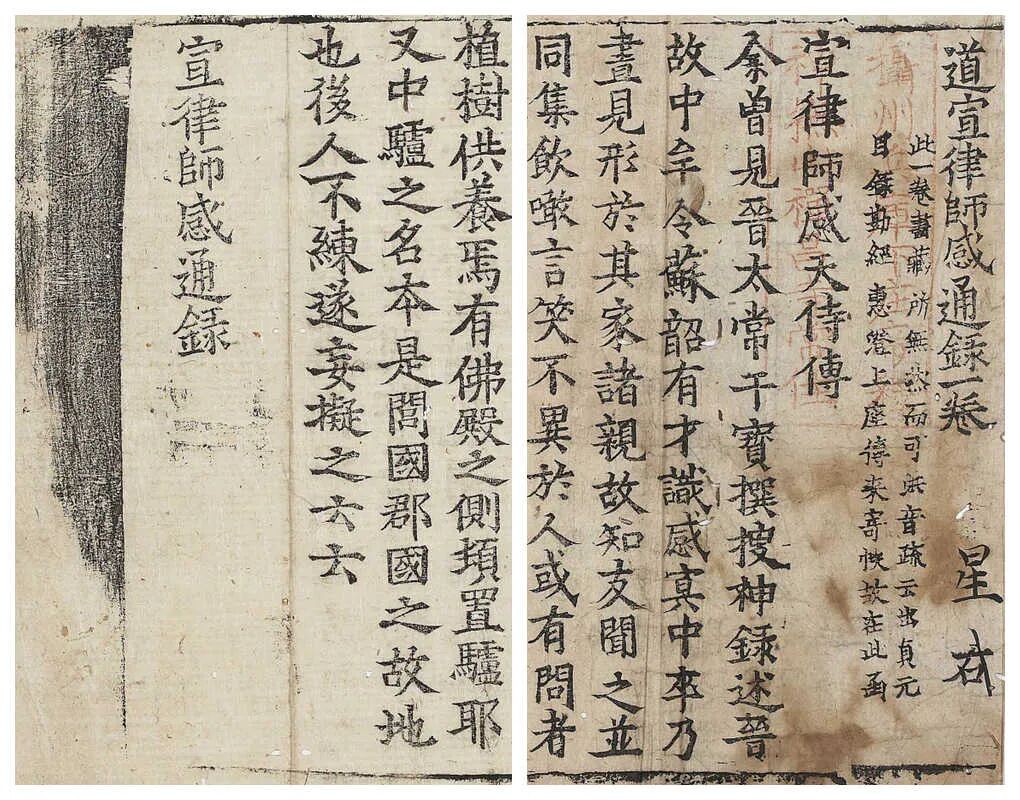 道宣律師感通錄一卷 星
此一卷書藏所無然而可洪音疏云出貞元
目錄勘經惠澄上座傳來寄帙故在此函
宣律師感天侍傳
余曾見晉太常干寶撰搜神錄述晉
故中牟令蘇韶有才識感冥中卒乃
晝見形於其家諸親故知友聞之並
同集飲噉言笑不異於人或有問者
植樹供養焉有佛殿之側頓置驢耶
又中驢之名本是閻國郡國之故地
也後人不練遂妄擬之云云
宣律師感通錄